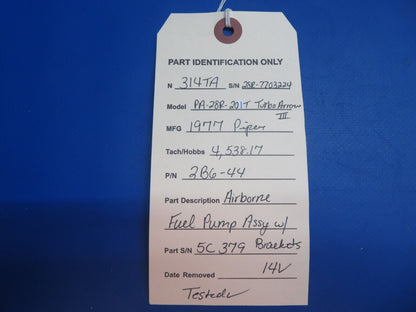 PART IDENTIFICATION ONLY
N 314TA S/N 28R-7703224
Model PA-28R-201T Turbo Arrow III
MFG 1977 Piper
Tach/Hobbs 4,538.17
P/N 2B6-44
Part Description Airborne
Fuel Pump Assy w/
Part S/N 5C 379 Brackets
Date Removed 14V
Tested✓